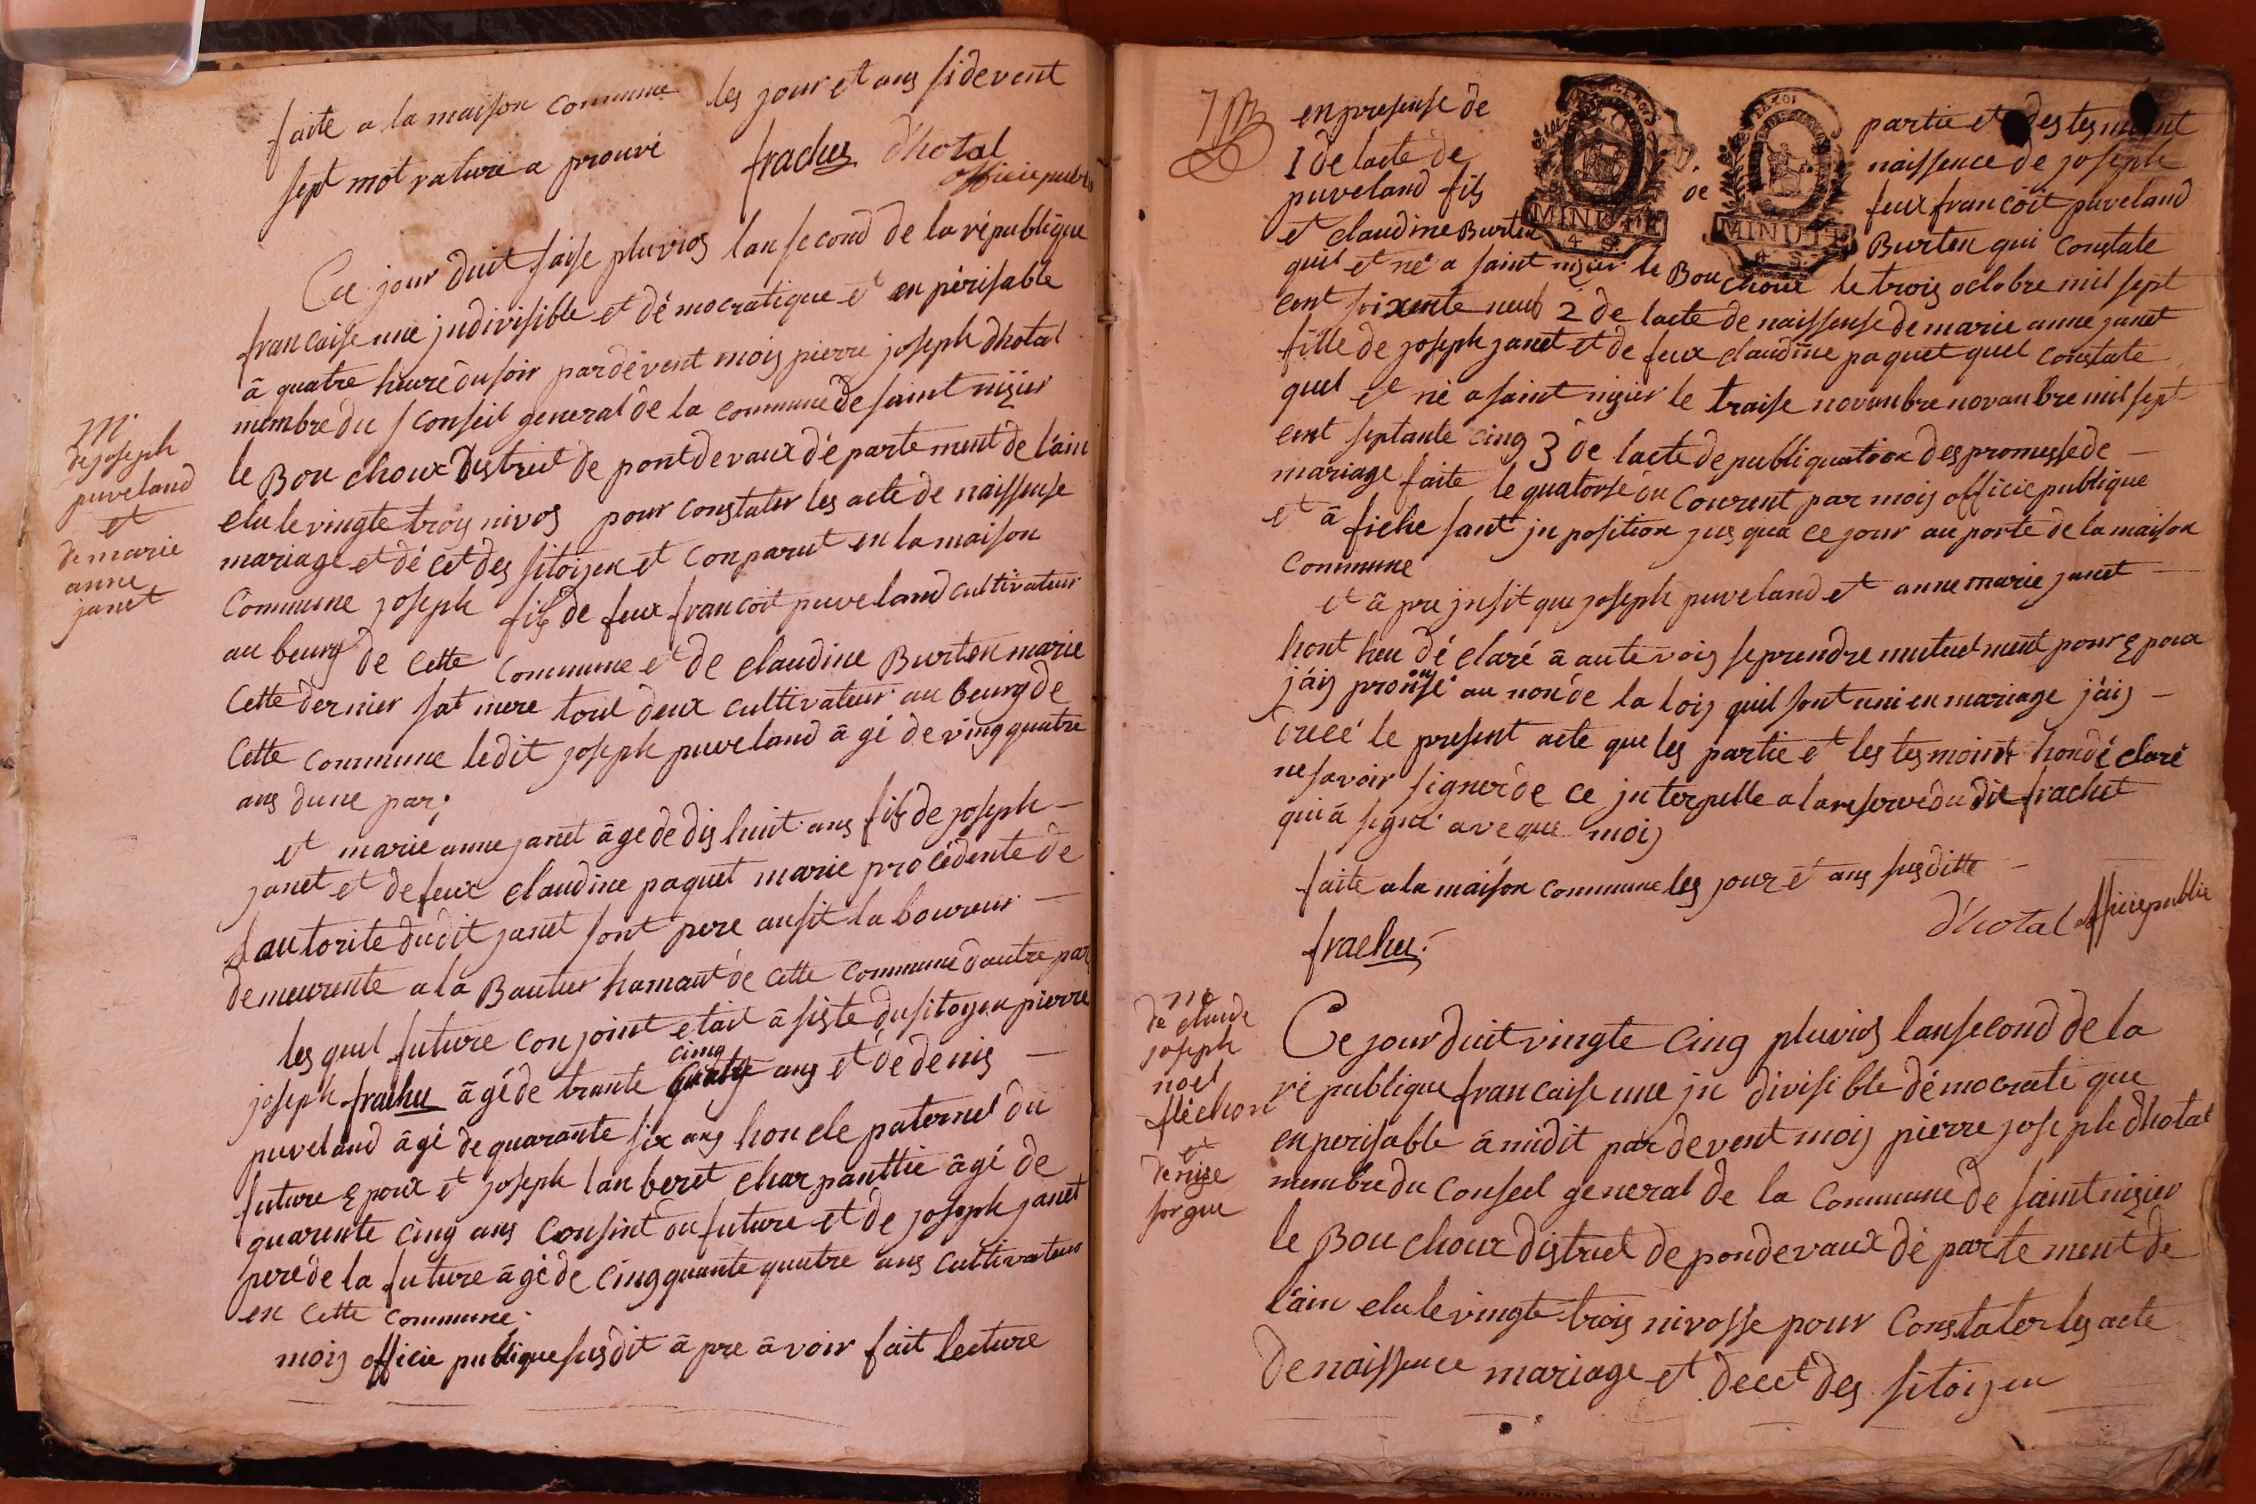 faite a la maison commune les jour et ans sidevent
sept mot rature a prouvé frachet d'hotal
officie public
Ce jour duit saise pluvios lan second de la république
francaise une jndivisible et démocratique et en périsable
à quatre heure du soir pardévent mois pierre joseph dhotal
membre du conseil general de la commune de saint nizier
le Bou choux District de pont de vaux département de l'ain
elu le vingte trois nivos pour constater les acte de naissense
mariage et décet des sitoijen et conparut en la maison
commune joseph fils de feux francoit puveland cultivateur
au beurg de cette commune et de claudine Burten marie
cette dernier sat mere tout deux cultivateur au beurg de
cette commune ledit joseph puveland âgé de vingquatre
ans dune par;
et marie anne janet âge de dis huit ans fils de joseph
janet et de feux claudine paquet marie procédente de
lautorite dudit janet sont pere ausit laboureur
demeurente a la Bautier hamaut de cette commune dautre par
les quel future conjoint etait âsiste du sitoyen pierre
cinq
joseph frachet âgé de trante ans et de denis
puveland âgé de quarante six ans honcle paternel du
future Epoux et joseph lanberet charpanttie âgé de
quarente cinq ans consint du future et de joseph janet
pere de la future âgé de cingquante quatre ans cultivateur
en cette commune
mois officie publique susdit âpre âvoir fait lecture
M
de joseph
puveland
et
de marie
anne
janet
en presense de partie et des tesmoint
1 de lacte de naissence de joseph
puveland fils de feux francoit puveland
et claudine Burten Burten qui constate
quil et né a saint nizier le Bou choux le trois octobre mil sept
cent soixente neuf 2 de lacte de naissense de marie anne janet
fille de joseph janet et de feux claudine paquet quel constate
quel et né a saint nizier le traise novanbre novanbre mil sept
cent septante cinq 3 de lacte de publiquation des promesse de
mariage faite le quatorse du courent par mois officie publique
et â fiche sant jn position jusqua ce jour au porte de la maison
commune
et âpre jnsit que joseph puveland et anne marie janet
hont heu déclaré â aute vois se prendre mutuelment pour Epoux
j'ais pronsé au non de la lois quil sont uni en mariage j'ais
le present acte que les partie et les tesmoint hon déclaré
ne savoir signer de ce jnterpelle a la reserve du dit frachet
qui à signé aveque mois
faite a la maison commune les jour et ans susditte
frachet d'hotal officie public
M
de claude
joseph
noel
fléchon
et
denise
sorgue
Ce jour duit vingte cinq pluvios lan second de la
république francaise une jn divisible démocratique
enperisable à midit par devent mois pierre joseph dhotal
membre du conseil general de la commune de saint nizier
le Bou choux district de pondevaux département de
l'ain elu le vingte trois nivosse pour constater les acte
de naissence mariage et decet des sitoijen
MINUTE
4 S.
MINUTE
4 S.